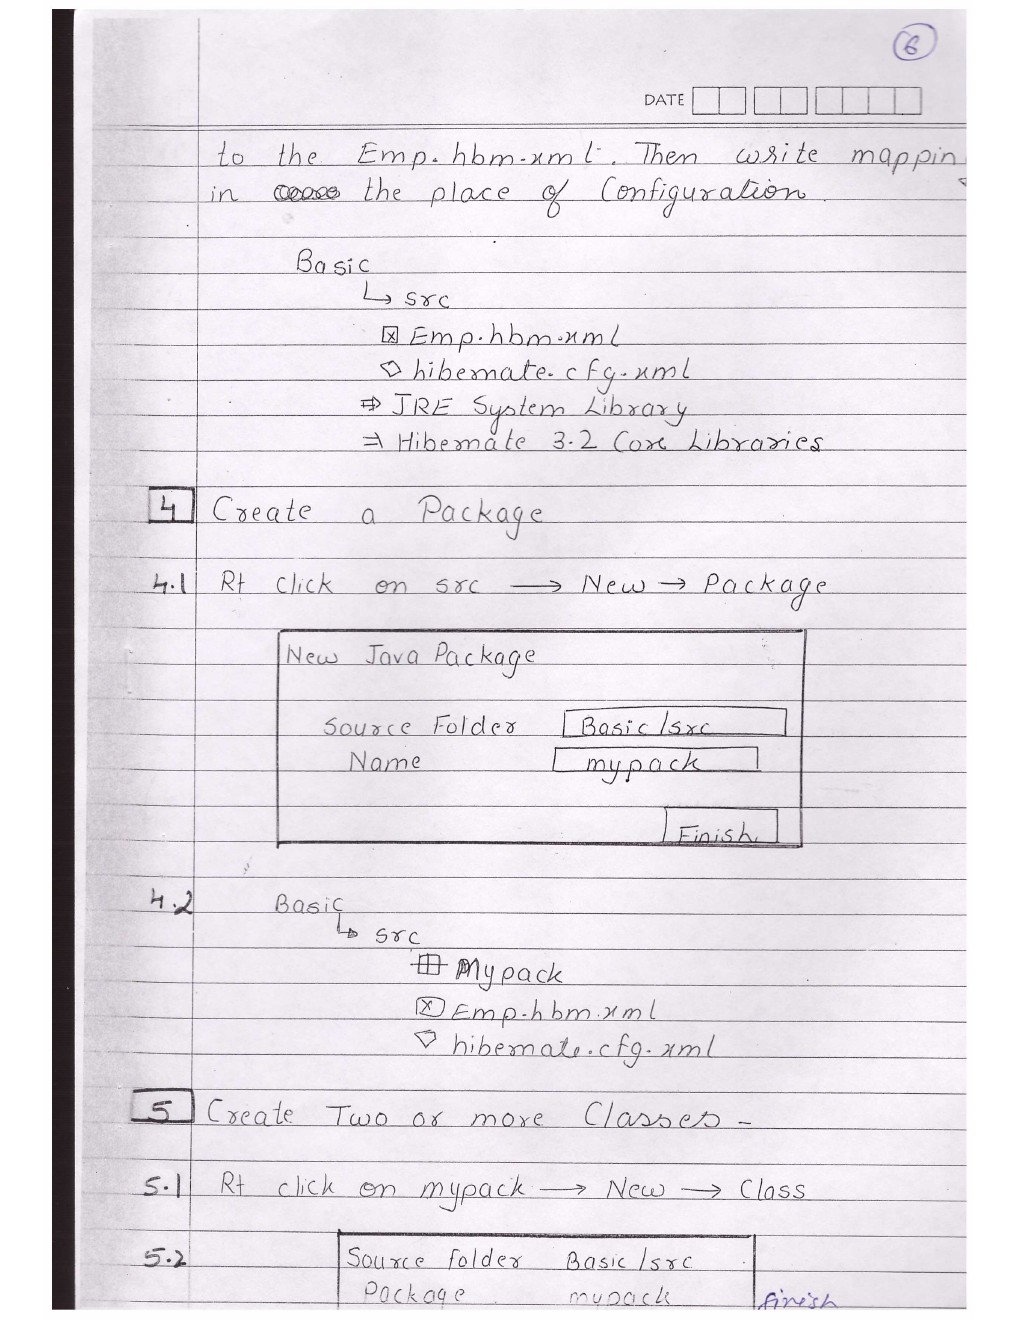 6
DATE
to the Emp.hbm.xml. Then write mappin
in the place of Configuration.
Basic
↳ src
Emp.hbm.xml
hibernate.cfg.xml
⇒ JRE System Library
⇒ Hibernate 3.2 Core Libraries
4 Create a Package
4.1 Rt click on src → New → Package
New Java Package
Source Folder Basic/src
Name mypack
Finish
4.2 Basic
↳ src
Mypack
Emp.hbm.xml
hibernate.cfg.xml
5 Create Two or more Classes -
5.1 Rt click on mypack → New → Class
5.2 Source folder Basic/src
Package mypack finish